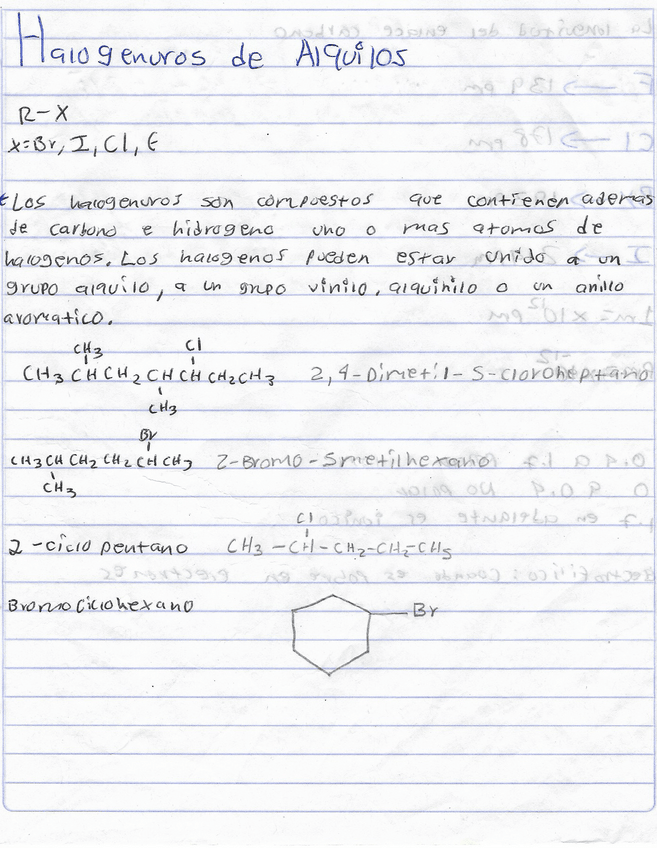 Halogenuros de Alquilos
R-X
X=Br, I, Cl, F
Los halogenuros son compuestos que contienen ademas
de carbono e hidrogeno uno o mas atomos de
halogenos. Los halogenos pueden estar unido a un
grupo alquilo, a un grupo vinilo, alquinilo o un anillo
aromatico.
CH3 Cl
CH3 CH CH2 CH CH CH2CH3 2,4-Dimetil-5-cloroheptano
CH3
Br
CH3CH CH2 CH2 CH CH3 2-Bromo-5metilhexano
CH3
Cl
2-ciclo pentano CH3-CH-CH2-CH2-CH3
Bromociclohexano Br